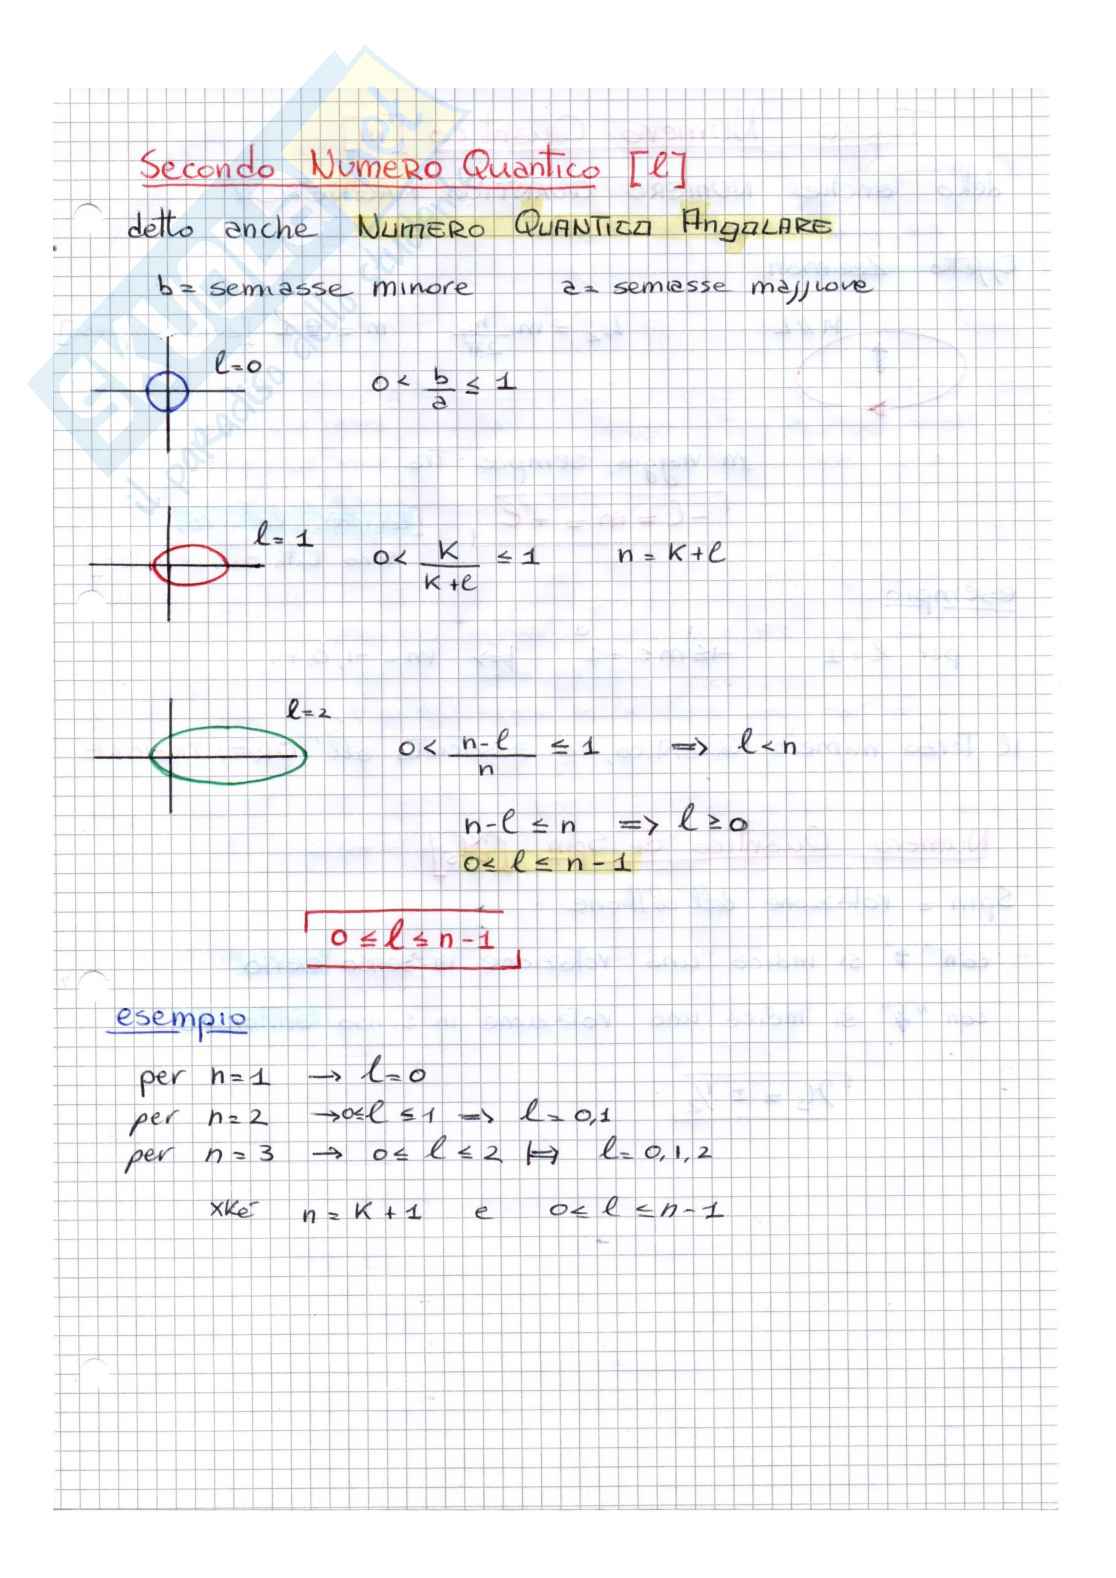 Secondo Numero Quantico [ℓ]
detto anche NUMERO QUANTICO ANGOLARE
b = semiasse minore a = semiasse maggiore
ℓ=0
0 < b/a ≤ 1
ℓ= 1
0 < K/(K+ℓ) ≤ 1 n = K+ℓ
ℓ=2
0 < (n-ℓ)/n ≤ 1 => ℓ < n
n-ℓ ≤ n => ℓ ≥ 0
0 ≤ ℓ ≤ n-1
0 ≤ ℓ ≤ n-1
esempio
per n=1 → ℓ=0
per n=2 → 0≤ℓ ≤1 => ℓ= 0,1
per n=3 → 0≤ ℓ ≤ 2 => ℓ= 0,1,2
xKé n = K+1 e 0≤ ℓ ≤ n-1
SKUOLA.net
il paradiso dello studente